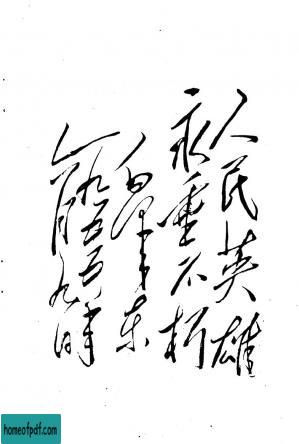 人民英雄
永垂不朽
毛泽东
一九五五年
六月九日
homeofpdf.com